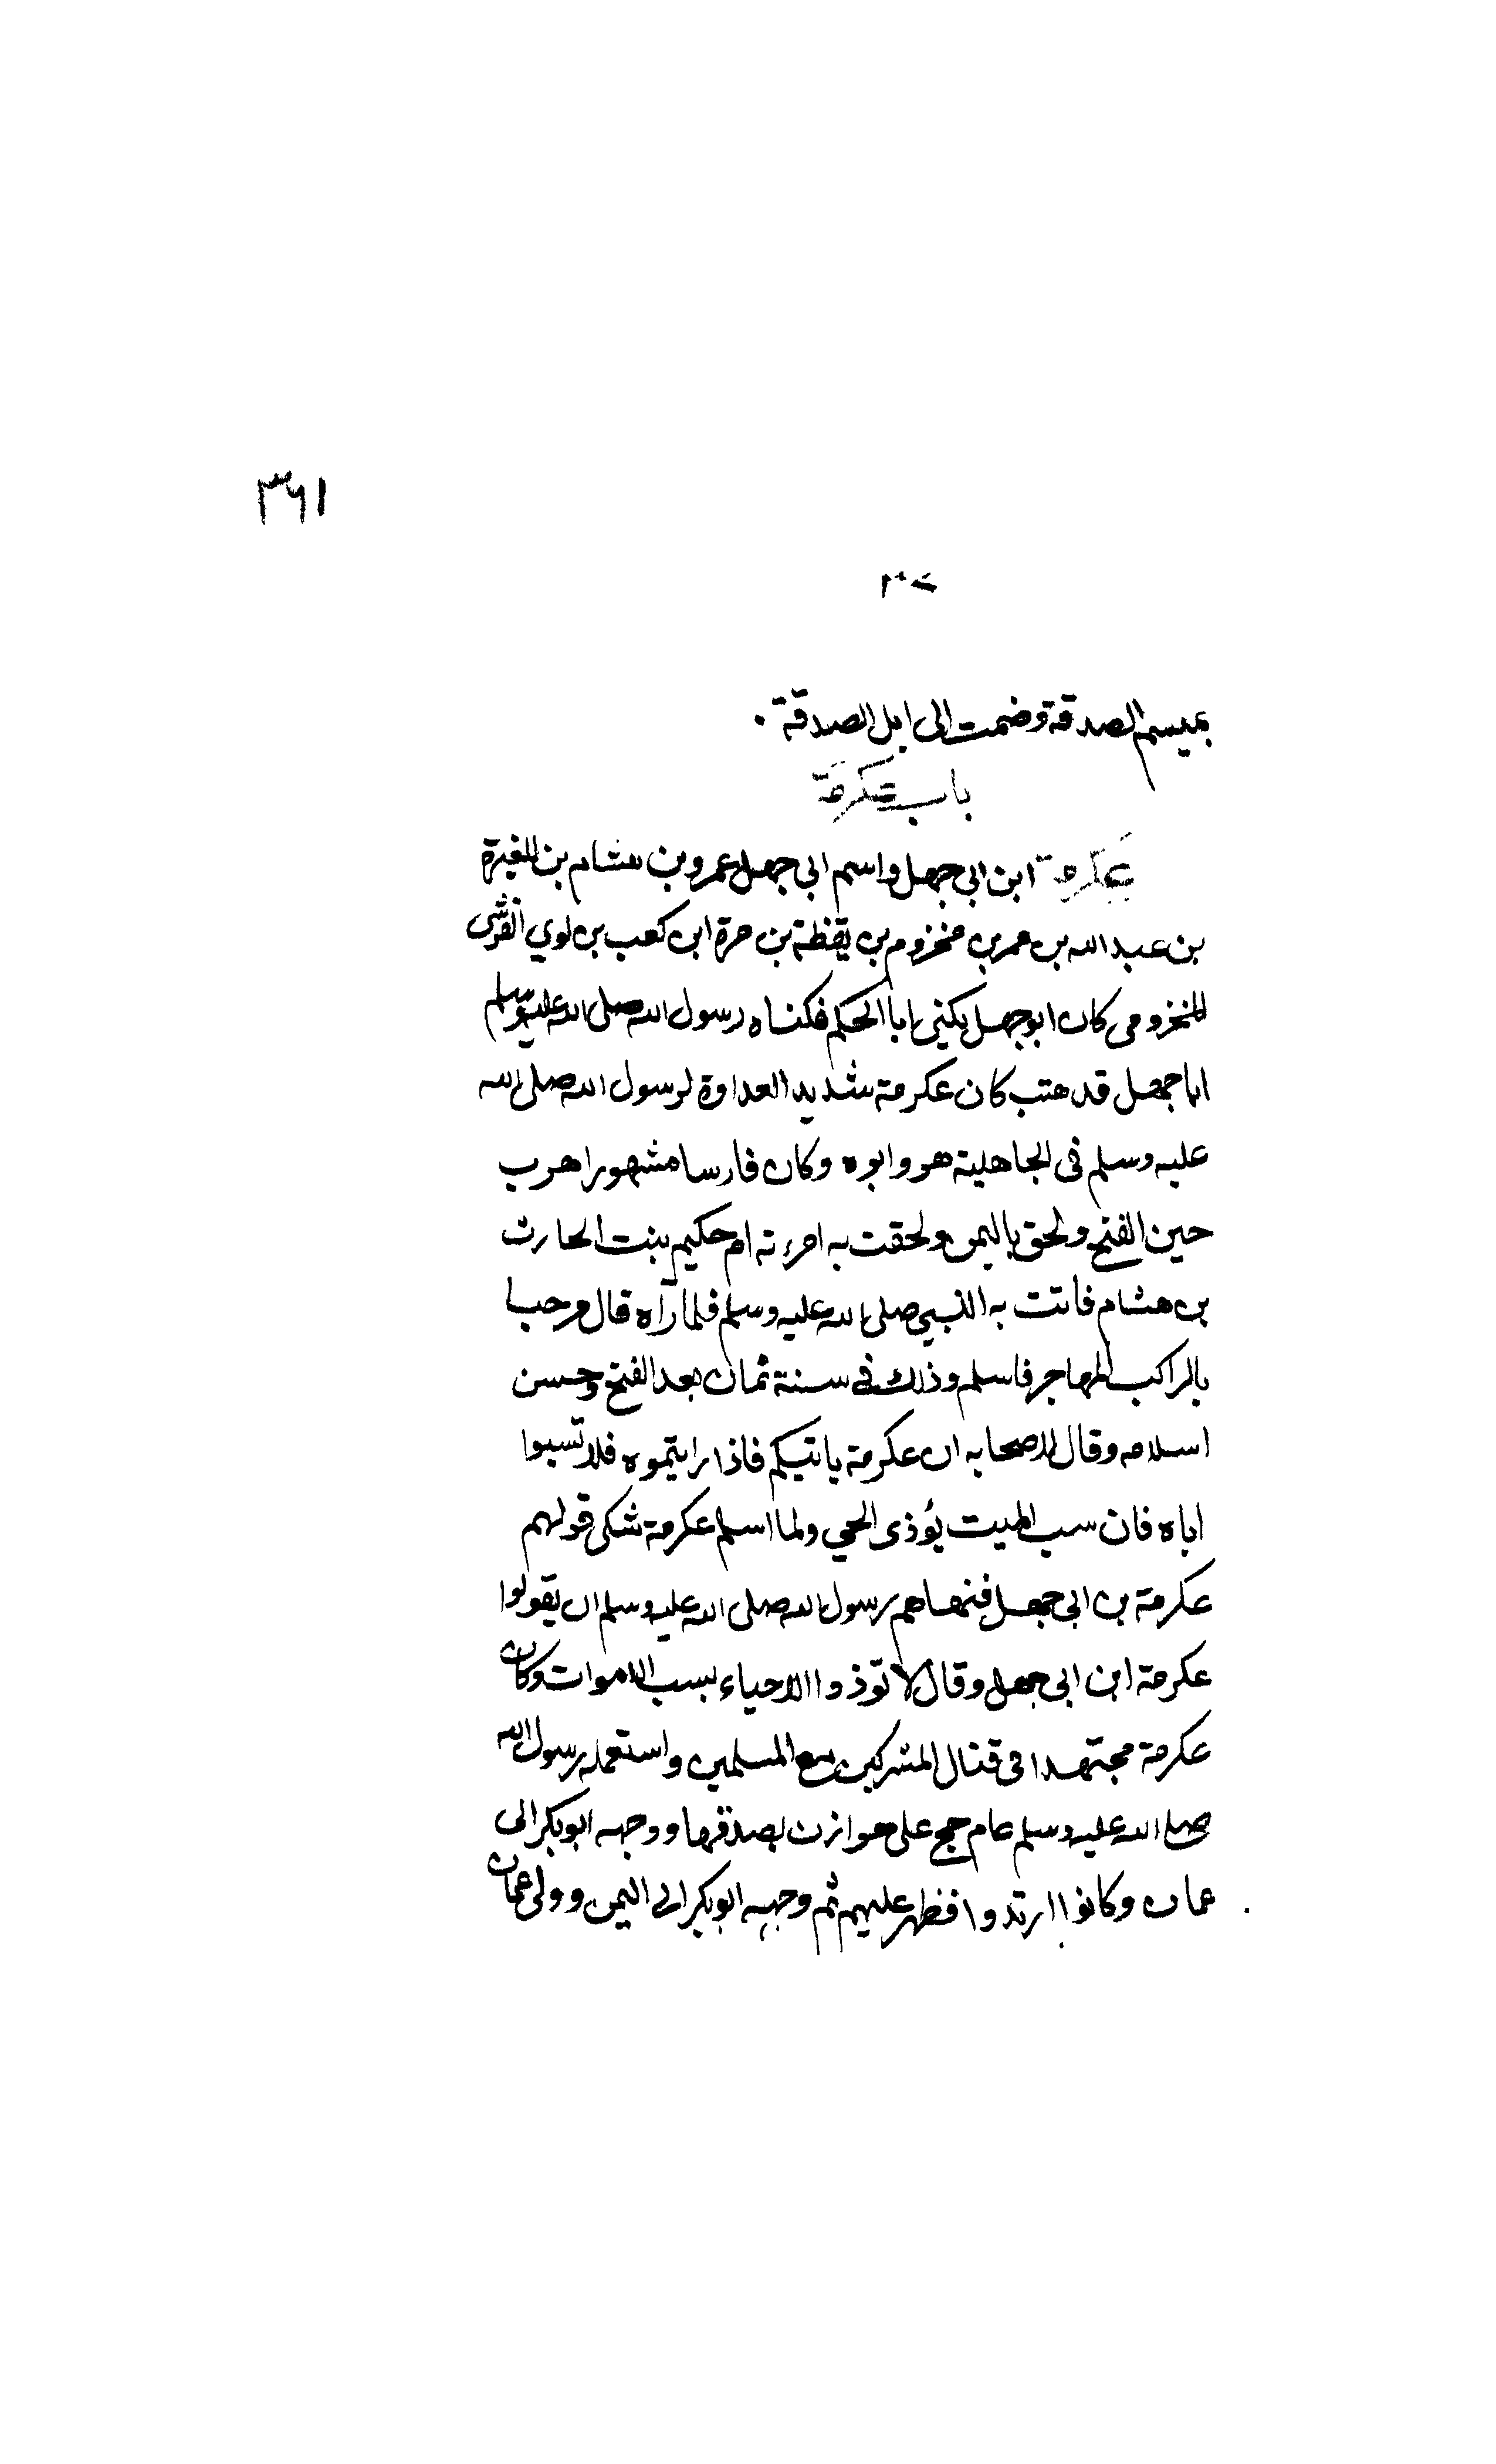 ٣٦١
بميسم الصدقة وضمت الى ابل الصدقة .
باب عكرمة
عكرمة ابن ابى جهل واسم ابي جهل عمرو بن هشام بن المغيرة
بن عبد الله بن عمر بن مخزوم بن يقظة بن مرة ابن كعب بن لوي القرشى
المخزومى كان ابو جهل يكنى ابا الحكم فكناه رسول الله صلى الله عليه وسلم
ابا جهل قد هتب كان عكرمة شديد العداوة لرسول الله صلى الله
عليه وسلم فى الجاهلية هو وابوه وكان فارسا مشهورا هرب
حين الفتح ولحق باليمن ولحقت به امرءته ام حكيم بنت الحارث
بن هشام فاتت به النبي صلى الله عليه وسلم فلما رآه قال مرحبا
بالراكب المهاجر فاسلم وذلك فى سنة ثمان بعد الفتح وحسن
اسلامه وقال لاصحابه ان عكرمة ياتيكم فاذا رايتموه فلا تسبوا
اباه فان سب الميت يؤذى الحي ولما اسلم عكرمة شكى قولهم
عكرمة بن ابى جهل فنهاهم رسول الله صلى الله عليه وسلم ان يقولوا
عكرمة ابن ابى جهل وقال لا توذوا الاحياء بسب الاموات وكان
عكرمة مجتهدا فى قتال المشركين مع المسلمين واستعمله رسول الله
صلى الله عليه وسلم عام حج على هوازن بصدقها ووجهه ابو بكر الى
عمان وكانوا ارتدوا فظهر عليهم ثم وجهه ابو بكر الى اليمن وولى عمان